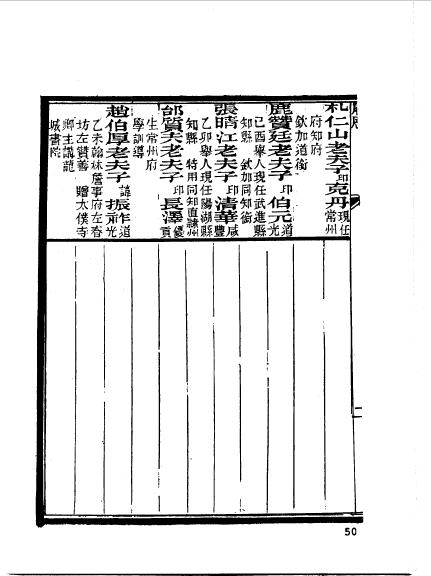 札仁山老夫子印克丹現任常州
府知府
欽加道銜
鹿贊廷老夫子印伯元道光
己酉舉人現任武進縣
知縣 欽加同知銜
張晴江老夫子印清華咸豐
乙卯舉人現任陽湖縣
知縣 特用同知直隸州
邰質夫老夫子印長濬優貢
生常州府
學訓導
趙伯厚老夫子諱振祚道光
乙未翰林詹事府左春
坊左贊善 贈太僕寺
卿主講龍
城書院
50